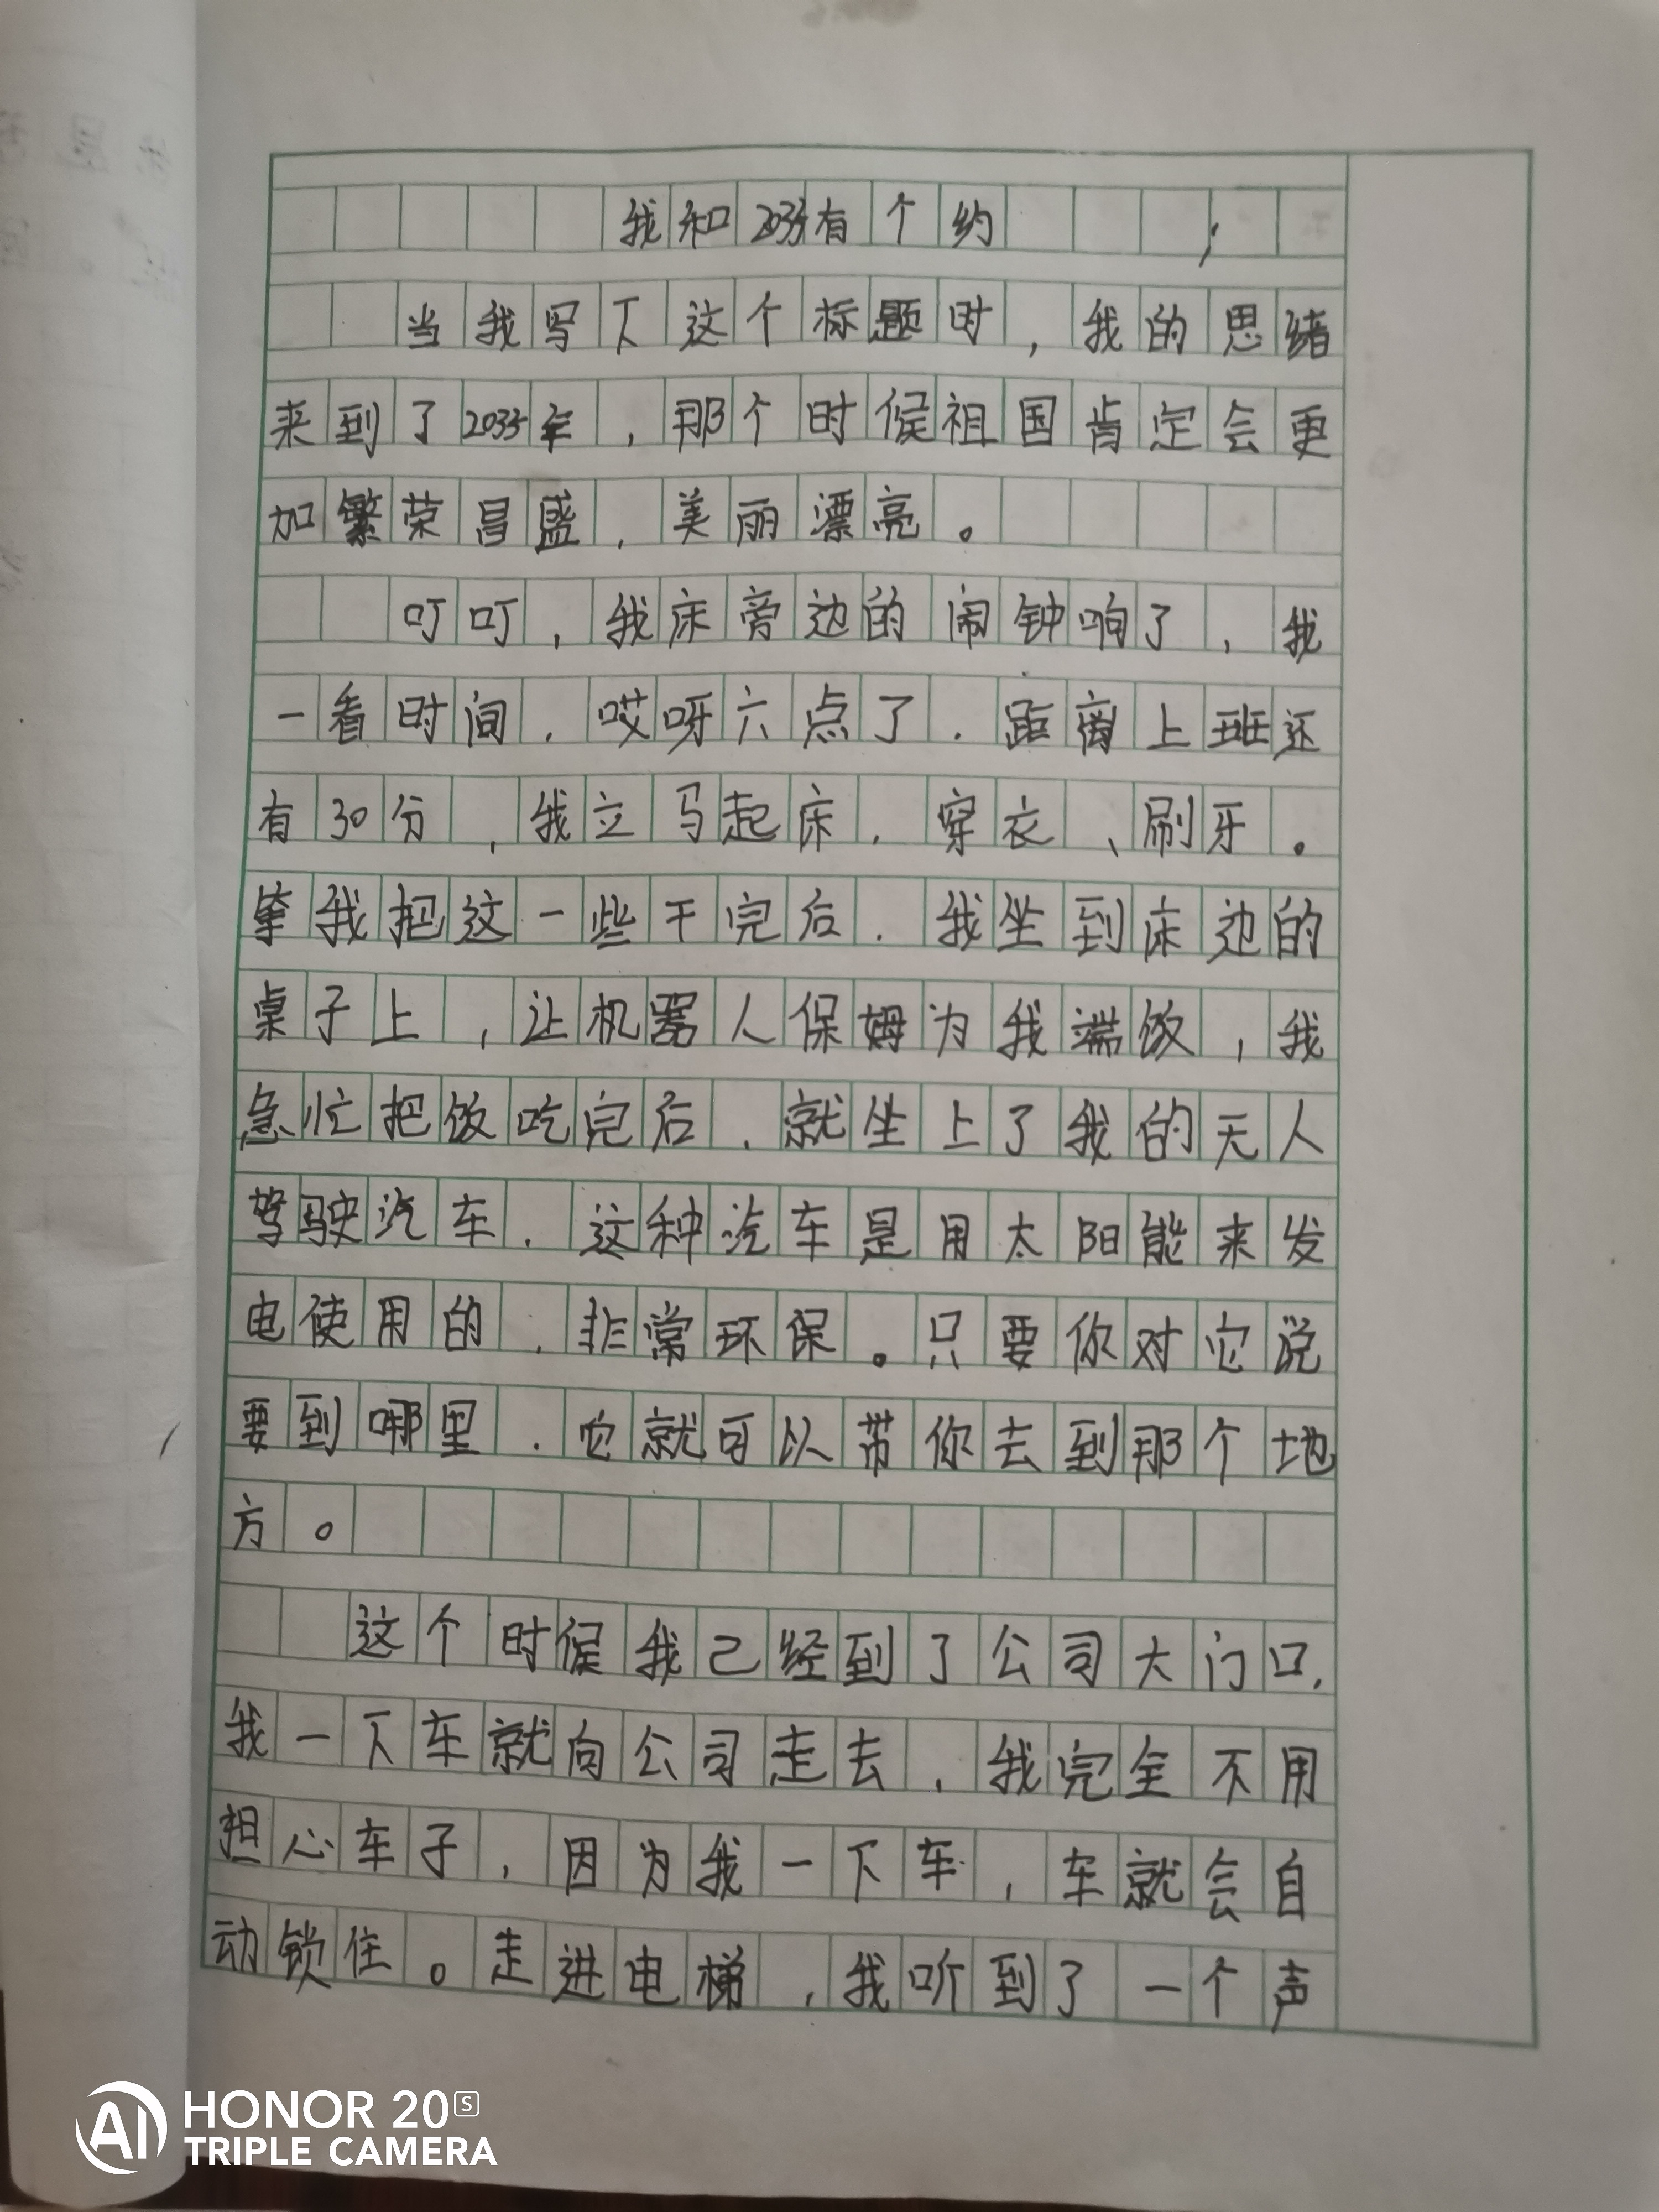 我和2035有个约
当我写下这个标题时，我的思绪
来到了2035年，那个时候祖国肯定会更
加繁荣昌盛，美丽漂亮。
叮叮，我床旁边的闹钟响了，我
一看时间，哎呀六点了，距离上班还
有30分，我立马起床，穿衣、刷牙。
我把这一些干完后，我坐到床边的
桌子上，让机器人保姆为我端饭，我
急忙把饭吃完后，就坐上了我的无人
驾驶汽车，这种汽车是用太阳能来发
电使用的，非常环保。只要你对它说
要到哪里，它就可以带你去到那个地
方。
这个时候我已经到了公司大门口，
我一下车就向公司走去，我完全不用
担心车子，因为我一下车，车就会自
动锁住。走进电梯，我听到了一个声
HONOR 20S
TRIPLE CAMERA